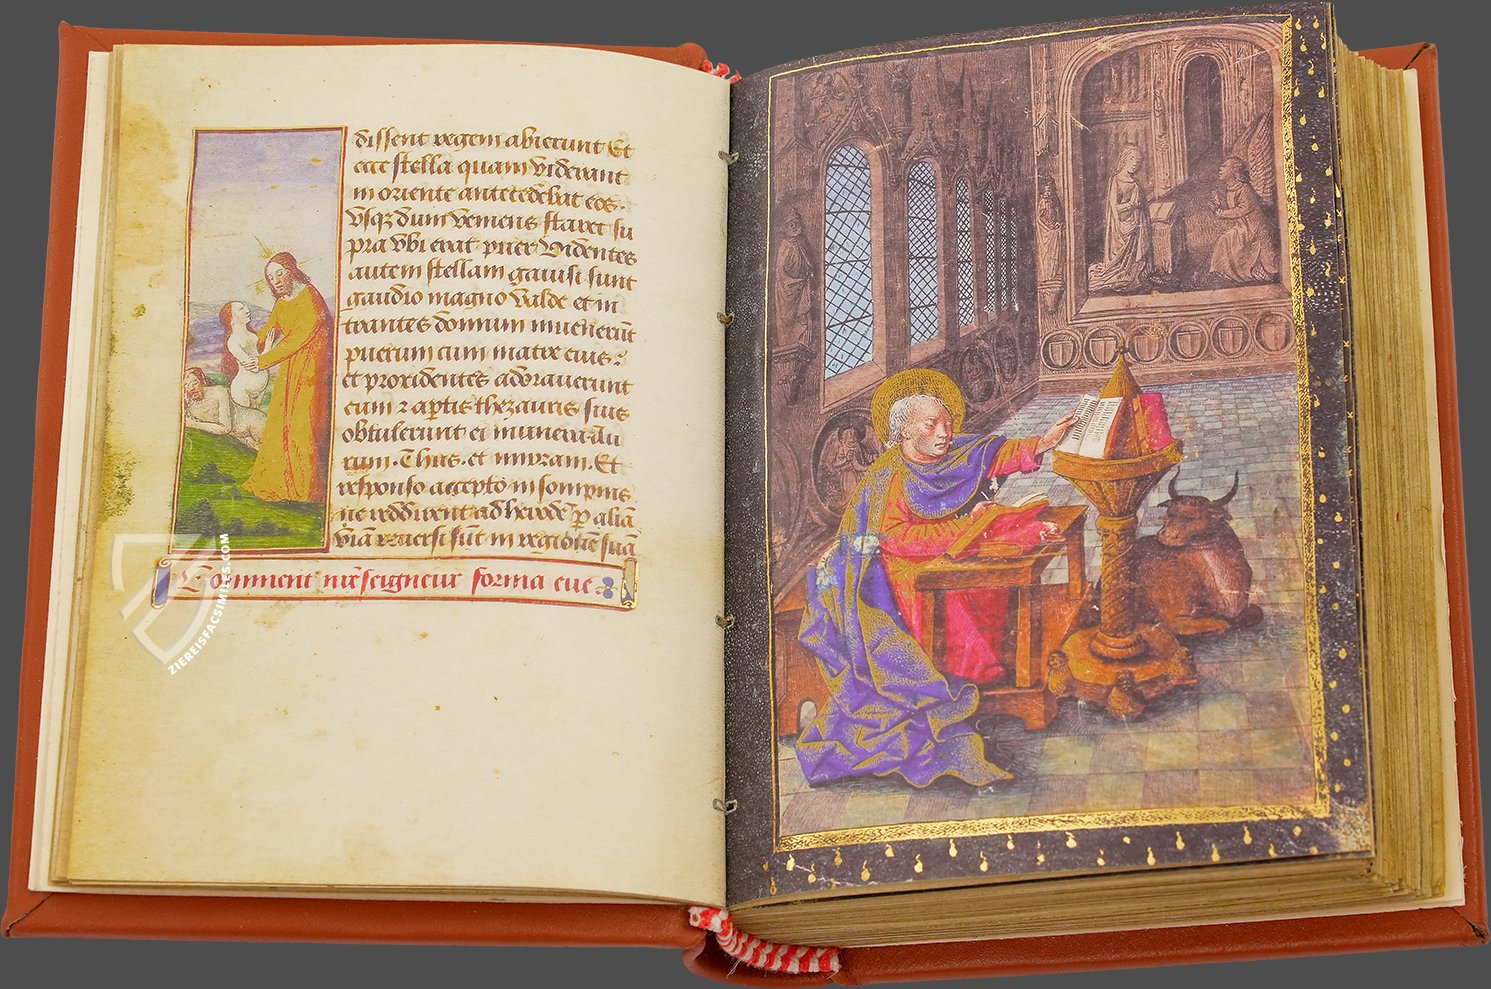 dissent regem abierunt Et
ecce stella quam viderant
in oriente antecedebat eos.
Vsqz dum veniens staret su
pra vbi erat puer Videntes
autem stellam gauisi sunt
gaudio magno valde et in
trantes domum inuenerūt
puerum cum matre eius:
et procidentes adorauerunt
eum z aptis thezauris suis
obtulerunt ei munera Au
rum. Thus. et mirram. Et
responso accepto in sompnis
ne reddirent ad herodē p aliā
viā reuersi sūt in regionē suā
Comment nr̄e seigneur forma eue
ZIEREISFACSIMILES.COM